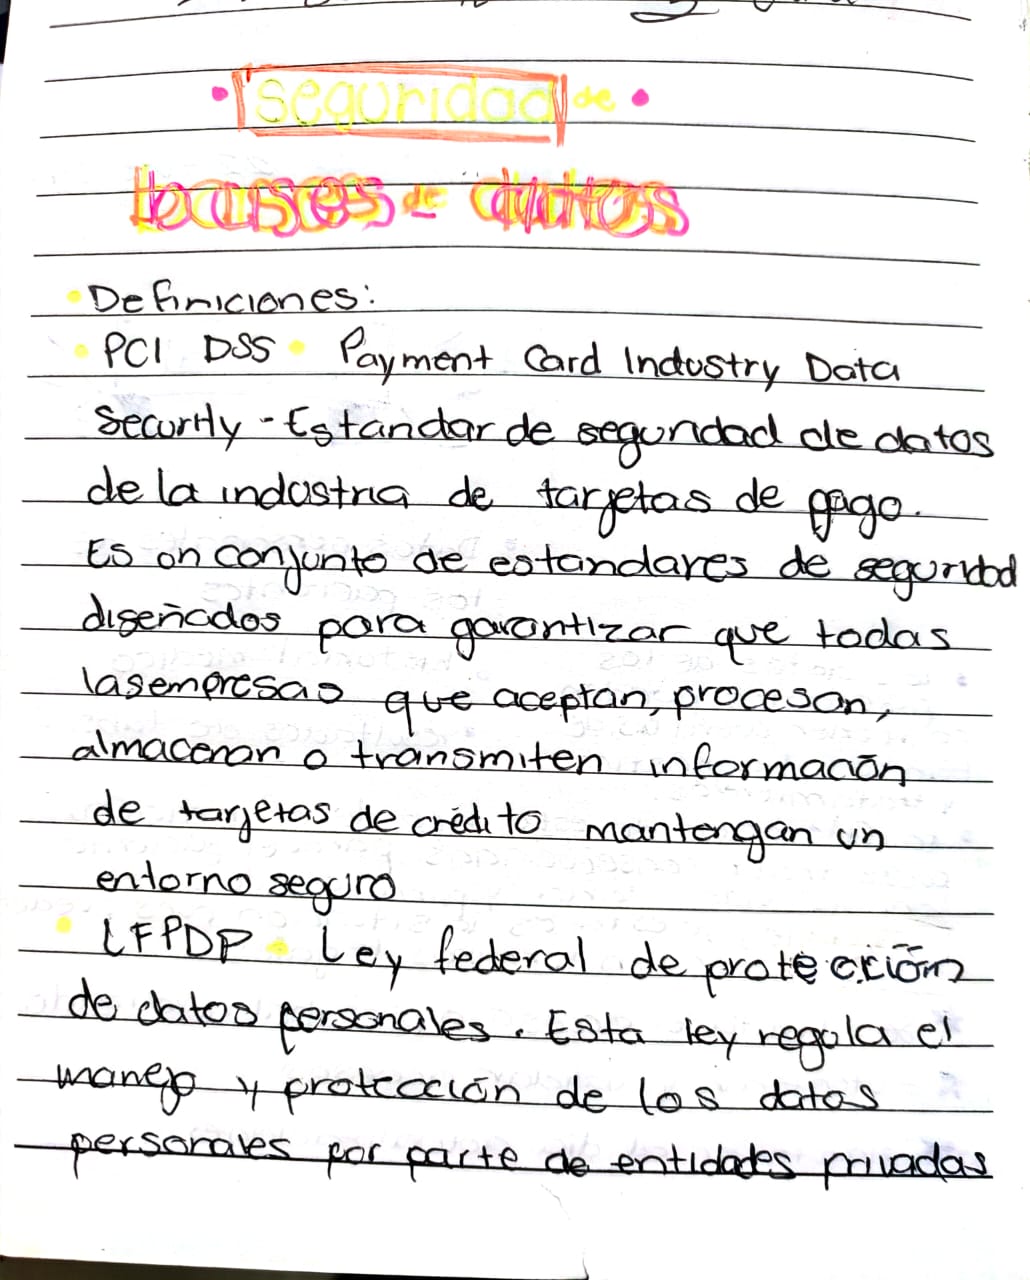 • seguridad de •
bases de datos
• Definiciones:
• PCI DSS • Payment Card Industry Data
Security - Estandar de seguridad de datos
de la industria de tarjetas de pago.
Es un conjunto de estandares de seguridad
diseñados para garantizar que todas
las empresas que aceptan, procesan,
almacenan o transmiten información
de tarjetas de crédito mantengan un
entorno seguro
• LFPDP • Ley federal de protección
de datos personales. Esta ley regula el
manejo y protección de los datos
personales por parte de entidades privadas